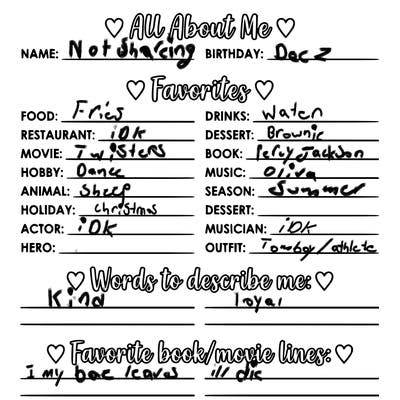 ♡ All About Me ♡
NAME: Not Sharing BIRTHDAY: Dec 2
♡ Favorites ♡
FOOD: Fries DRINKS: Water
RESTAURANT: iDK DESSERT: Brownie
MOVIE: Twisters BOOK: Percy Jackson
HOBBY: Dance MUSIC: Oliva
ANIMAL: Sheep SEASON: Summer
HOLIDAY: Christmas DESSERT:
ACTOR: iDK MUSICIAN: iDK
HERO: OUTFIT: Tomboy/athlete
♡ Words to describe me: ♡
Kind loyal
♡ Favorite book/movie lines: ♡
I my bae leaves ill die